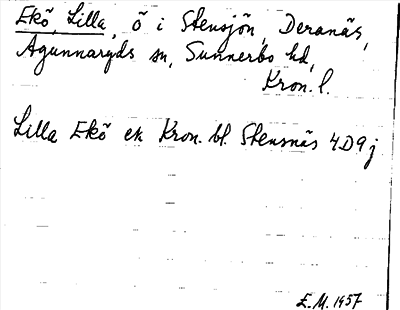 Ekö, Lilla, ö i Stensjön, Deranäs,
Agunnaryds sn, Sunnerbo hd,
Kron. l.
Lilla Ekö ek Kron. bl. Stensnäs 4D9j
E.M. 1957